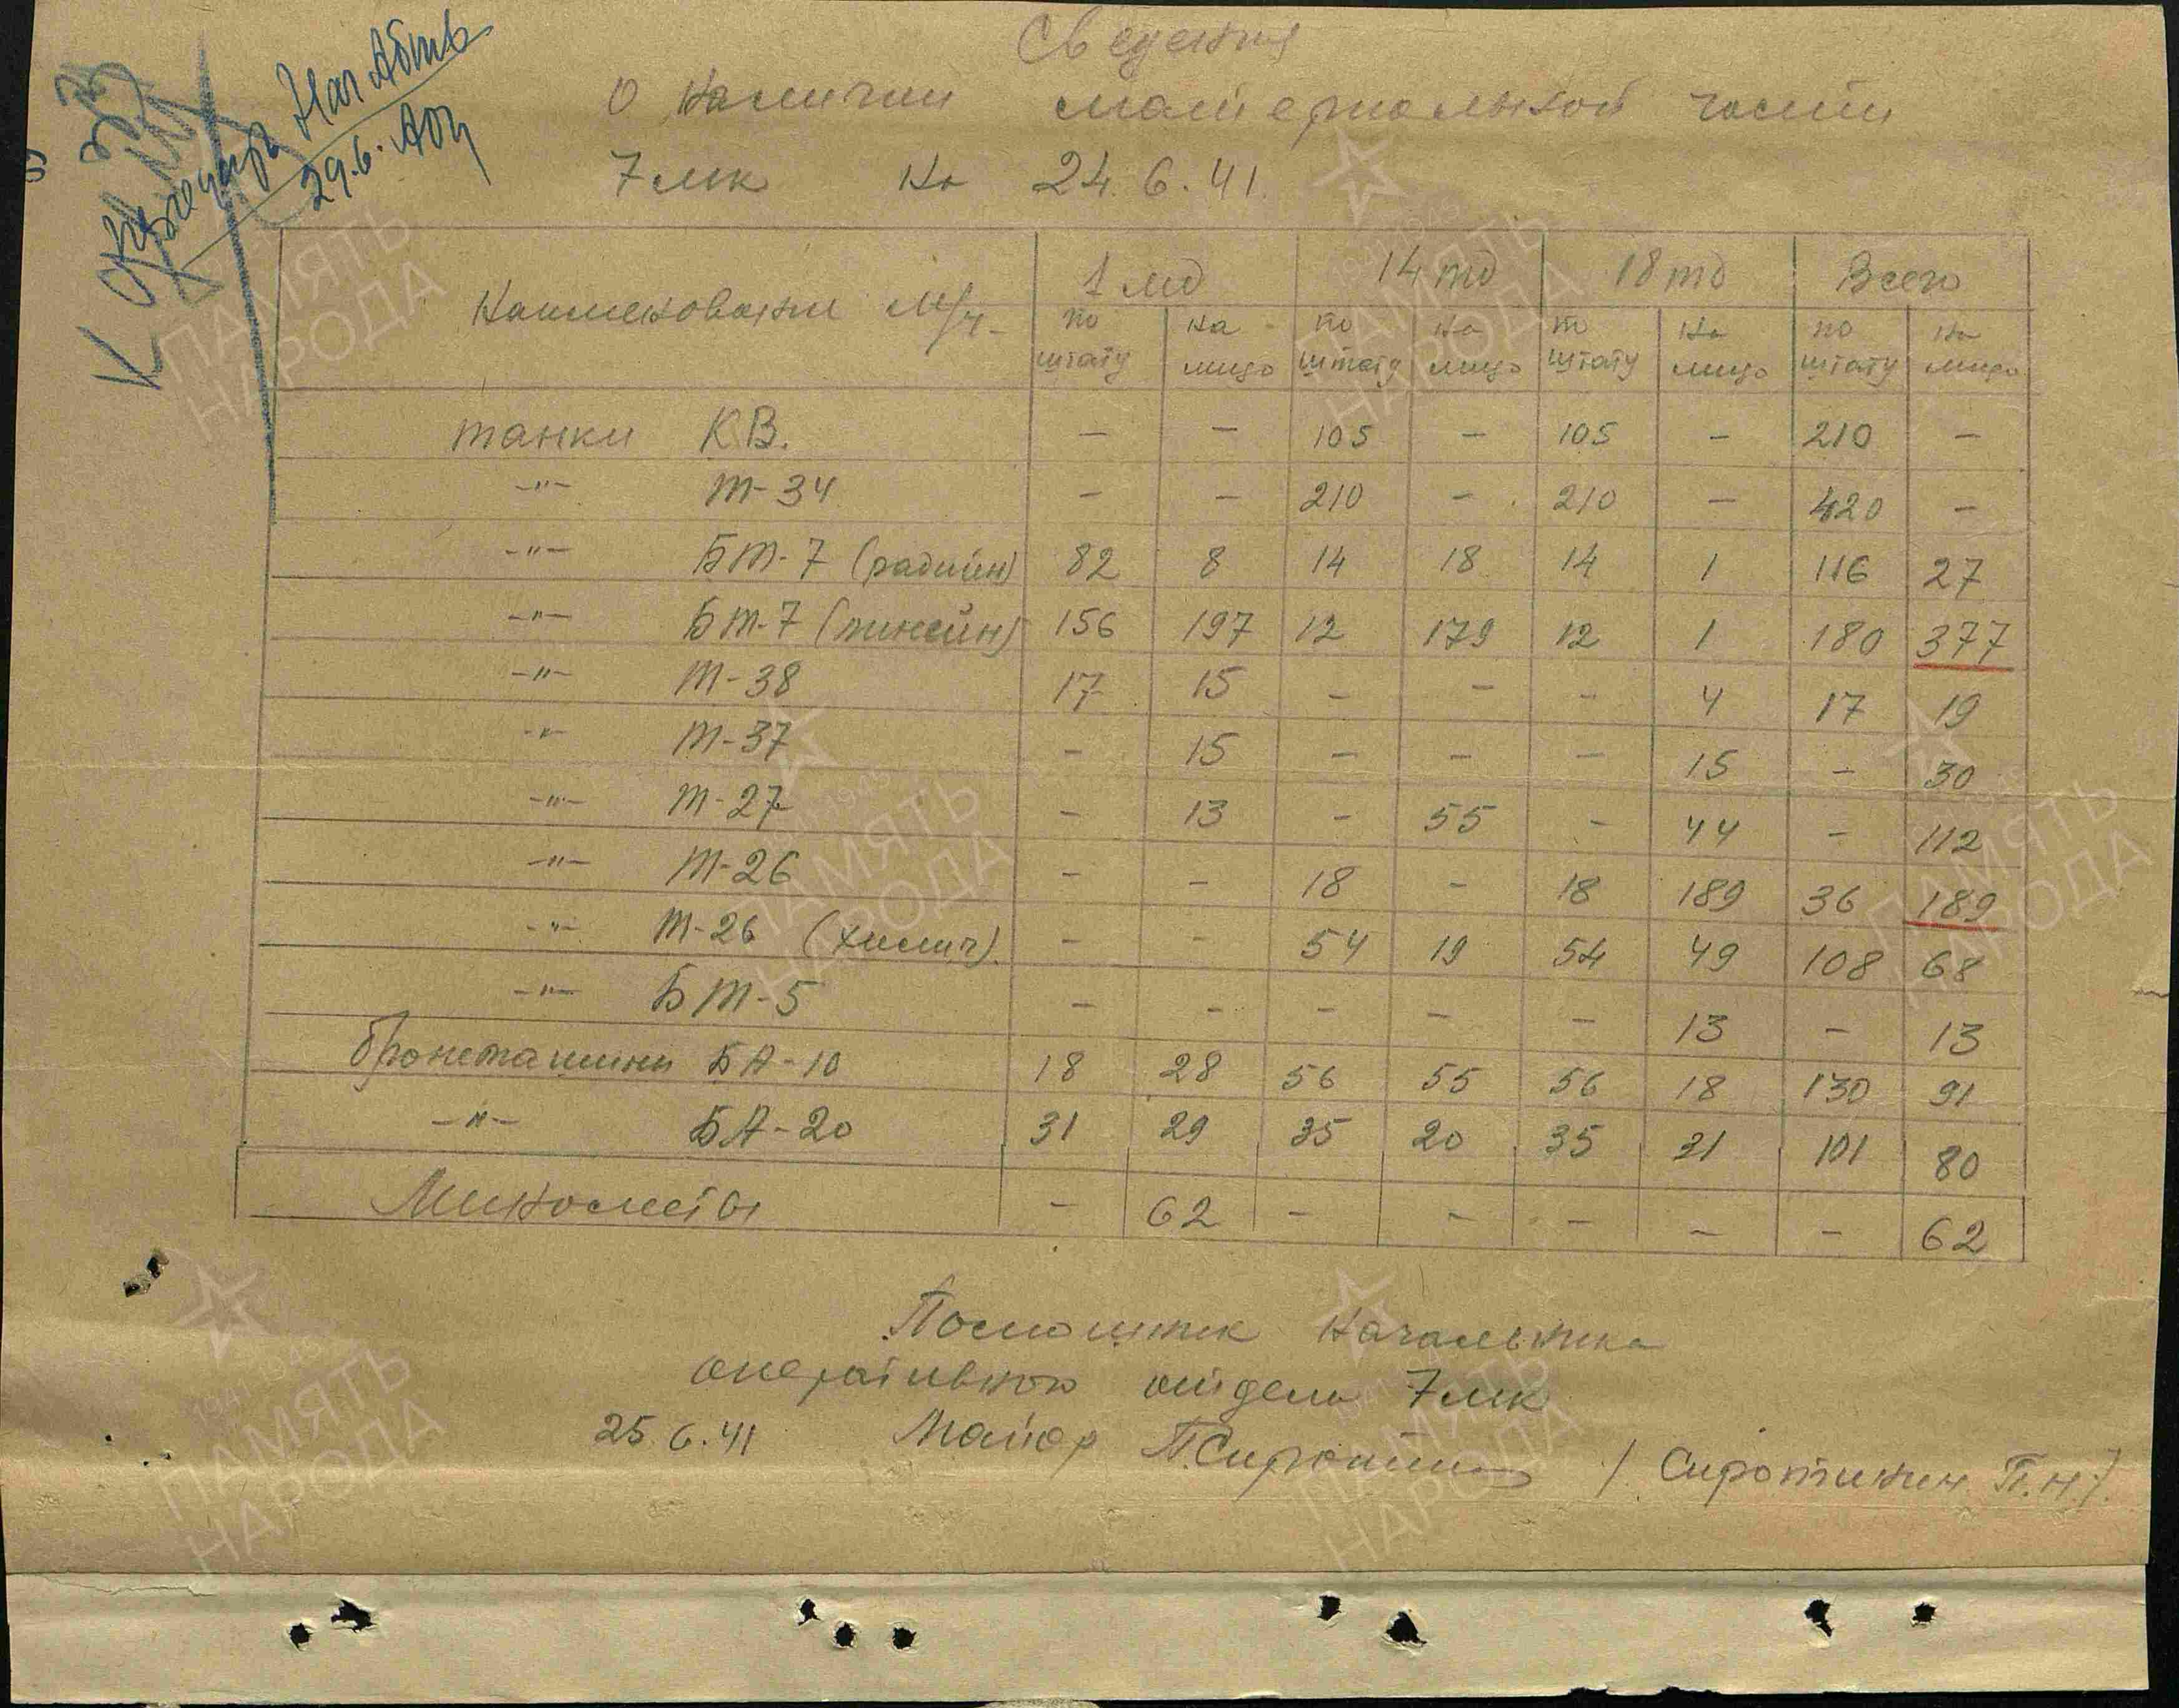 Сведения
о наличии материальной части
7 мк на 24.6.41.
Нач Абтв
29.6.
Наименование м/ч. 1 мд 14 тд 18 тд Всего
по штату на лицо по штату на лицо по штату на лицо по штату на лицо
танки КВ. — — 105 — 105 — 210 —
-"- Т-34 — — 210 — 210 — 420 —
-"- БТ-7 (радийн) 82 8 14 18 14 1 116 27
-"- БТ-7 (линейн) 156 197 12 179 12 1 180 377
-"- Т-38 17 15 — — — 4 17 19
-"- Т-37 — 15 — — — 15 — 30
-"- Т-27 — 13 — 55 — 44 — 112
-"- Т-26 — — 18 — 18 189 36 189
-"- Т-26 (химич). — — 54 19 54 49 108 68
-"- БТ-5 — — — — — 13 — 13
бронемашины БА-10 18 28 56 55 56 18 130 91
-"- БА-20 31 29 35 20 35 21 101 80
Минометы — 62 — — — — — 62
Помощник начальника
оперативного отдела 7 мк
25.6.41 Майор П.Сиротинин / Сиротинин П.Н./
1941 1945
ПАМЯТЬ
НАРОДА